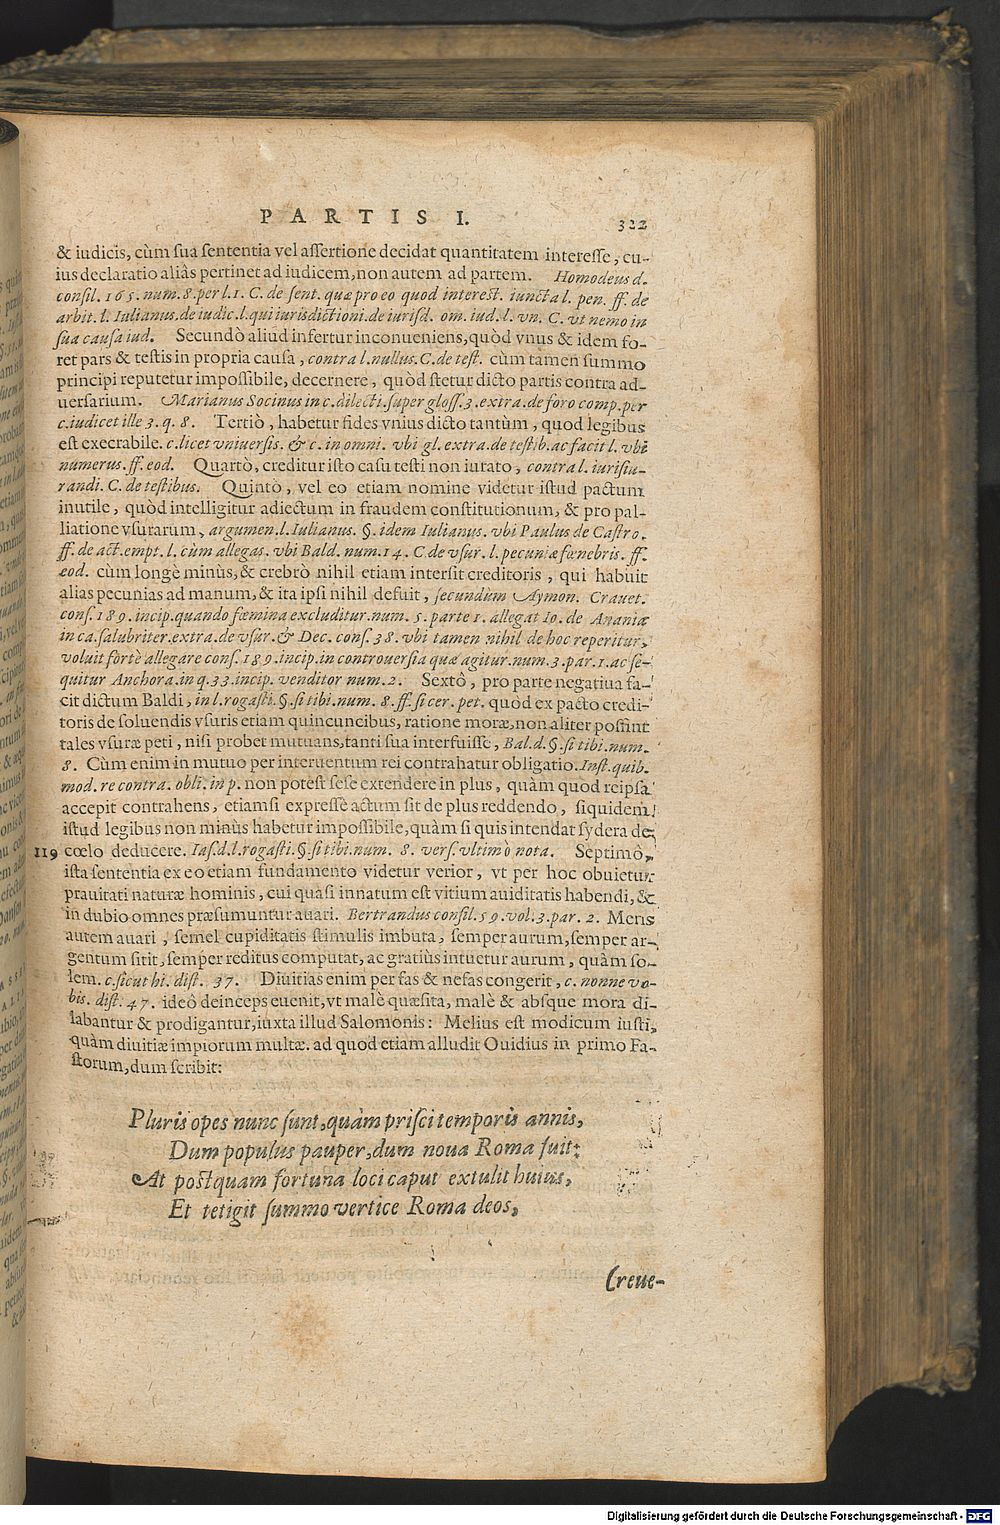 PARTIS I. 322
& iudicis, cùm sua sententia vel assertione decidat quantitatem interesse, cu-
ius declaratio aliàs pertinet ad iudicem, non autem ad partem. Homodeus d.
consil. 165. num. 8. per l. 1. C. de sent. quæ pro eo quod interest. iuncta l. pen. ff. de
arbit. l. Iulianus. de iudic. l. qui iurisdictioni. de iurisd. om. iud. l. vn. C. vt nemo in
sua causa iud. Secundò aliud infertur inconueniens, quòd vnus & idem fo-
ret pars & testis in propria causa, contra l. nullus. C. de test. cùm tamen summo
principi reputetur impossibile, decernere, quòd stetur dicto partis contra ad-
uersarium. Marianus Socinus in c. dilecti. super gloss. 3. extra. de foro comp. per
c. iudicet ille 3. q. 8. Tertiò, habetur fides vnius dicto tantùm, quod legibus
est execrabile. c. licet vniuersis. & c. in omni. vbi gl. extra. de testib. ac facit l. vbi
numerus. ff. eod. Quartò, creditur isto casu testi non iurato, contra l. iurisiu-
randi. C. de testibus. Quintò, vel eo etiam nomine videtur istud pactum
inutile, quòd intelligitur adiectum in fraudem constitutionum, & pro pal-
liatione vsurarum, argumen. l. Iulianus. §. idem Iulianus. vbi Paulus de Castro.
ff. de act. empt. l. cùm allegas. vbi Bald. num. 14. C. de vsur. l. pecuniæ fœnebris. ff.
eod. cùm longè minùs, & crebrò nihil etiam intersit creditoris, qui habuit
alias pecunias ad manum, & ita ipsi nihil defuit, secundùm Aymon. Crauet.
cons. 189. incip. quando fœmina excluditur. num. 5. parte 1. allegat Io. de Ananiæ
in ca. salubriter. extra. de vsur. & Dec. cons. 38. vbi tamen nihil de hoc reperitur,
voluit fortè allegare cons. 189. incip. in controuersia quæ agitur. num. 3. par. 1. ac se-
quitur Anchora. in q. 33. incip. venditor num. 2. Sextò, pro parte negatiua fa-
cit dictum Baldi, in l. rogasti. §. si tibi. num. 8. ff. si cer. pet. quod ex pacto credi-
toris de soluendis vsuris etiam quincuncibus, ratione moræ, non aliter possint
tales vsuræ peti, nisi probet mutuans, tanti sua interfuisse, Bal. d. §. si tibi. num.
8. Cùm enim in mutuo per interuentum rei contrahatur obligatio. Inst. quib.
mod. re contra. obli. in p. non potest sese extendere in plus, quàm quod reipsa
accepit contrahens, etiamsi expressè actum sit de plus reddendo, siquidem
istud legibus non minùs habetur impossibile, quàm si quis intendat sydera de
119 cœlo deducere. Ias. d. l. rogasti. §. si tibi. num. 8. vers. vltimò nota. Septimò,
ista sententia ex eo etiam fundamento videtur verior, vt per hoc obuietur
prauitati naturæ hominis, cui quasi innatum est vitium auiditatis habendi, &
in dubio omnes præsumuntur auari. Bertrandus consil. 59. vol. 3. par. 2. Mens
autem auari, semel cupiditatis stimulis imbuta, semper aurum, semper ar-
gentum sitit, semper reditus computat, ac gratiùs intuetur aurum, quàm so-
lem. c. sicut hi. dist. 37. Diuitias enim per fas & nefas congerit, c. nonne vo-
bis. dist. 47. ideò deinceps euenit, vt malè quæsita, malè & absque mora di-
labantur & prodigantur, iuxta illud Salomonis: Melius est modicum iusti,
quàm diuitiæ impiorum multæ. ad quod etiam alludit Ouidius in primo Fa-
storum, dum scribit:
Pluris opes nunc sunt, quàm prisci temporis annis,
Dum populus pauper, dum noua Roma fuit:
At postquam fortuna loci caput extulit huius,
Et tetigit summo vertice Roma deos,
Creue-
Digitalisierung gefördert durch die Deutsche Forschungsgemeinschaft - DFG